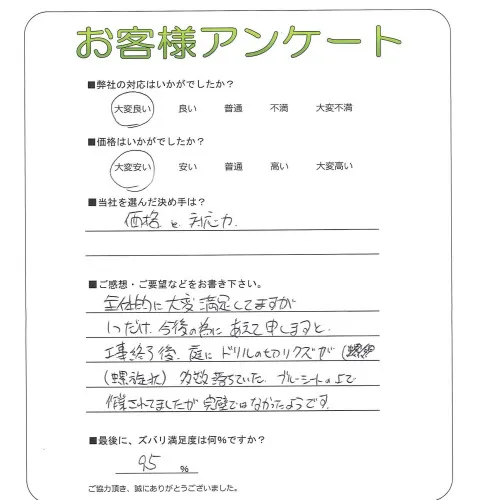 お客様アンケート
■弊社の対応はいかがでしたか？
大変良い 良い 普通 不満 大変不満
■価格はいかがでしたか？
大変安い 安い 普通 高い 大変高い
■当社を選んだ決め手は？
価格と対応力
■ご感想・ご要望などをお書き下さい。
全体的に大変満足してますが
1つだけ、今後の為にあえて申しますと、
工事終了後、庭にドリルの切りクズが
（螺旋状）多数落ちていた。ブルーシートの上で
作業されてましたが完璧ではなかったようです。
■最後に、ズバリ満足度は何％ですか？
95 %
ご協力頂き、誠にありがとうございました。